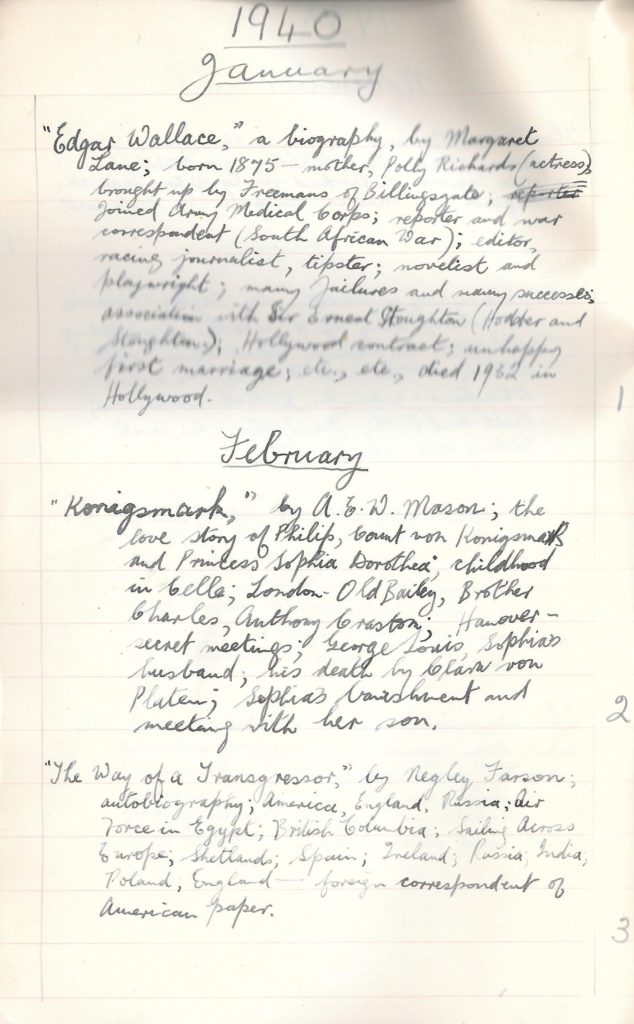 1940
January
"Edgar Wallace," a biography, by Margaret
Lane; born 1875 – mother, Polly Richards (actress),
brought up by Freemans of Billingsgate; reporter
joined Army Medical Corps; reporter and war
correspondent (South African War); editor,
racing journalist, tipster; novelist and
playwright; many failures and many successes;
association with Sir Ernest Stoughton (Hodder and
Stoughton); Hollywood contract; unhappy
first marriage; etc., etc., died 1932 in
Hollywood.
1
February
"Konigsmark," by A. E. W. Mason; the
love story of Philip, Count von Konigsmark
and Princess Sophia Dorothea; childhood
in Celle; London - Old Bailey, Brother
Charles, Anthony Craston; Hanover –
secret meetings; George Louis, Sophia's
husband; his death by Clara von
Platen; Sophia's banishment and
meeting with her son.
2
"The Way of a Transgressor," by Negley Farson;
autobiography; America, England, Russia; Air
Force in Egypt; British Columbia; Sailing Across
Europe; Shetlands; Spain; Ireland; Russia, India,
Poland, England – foreign correspondent of
American paper.
3